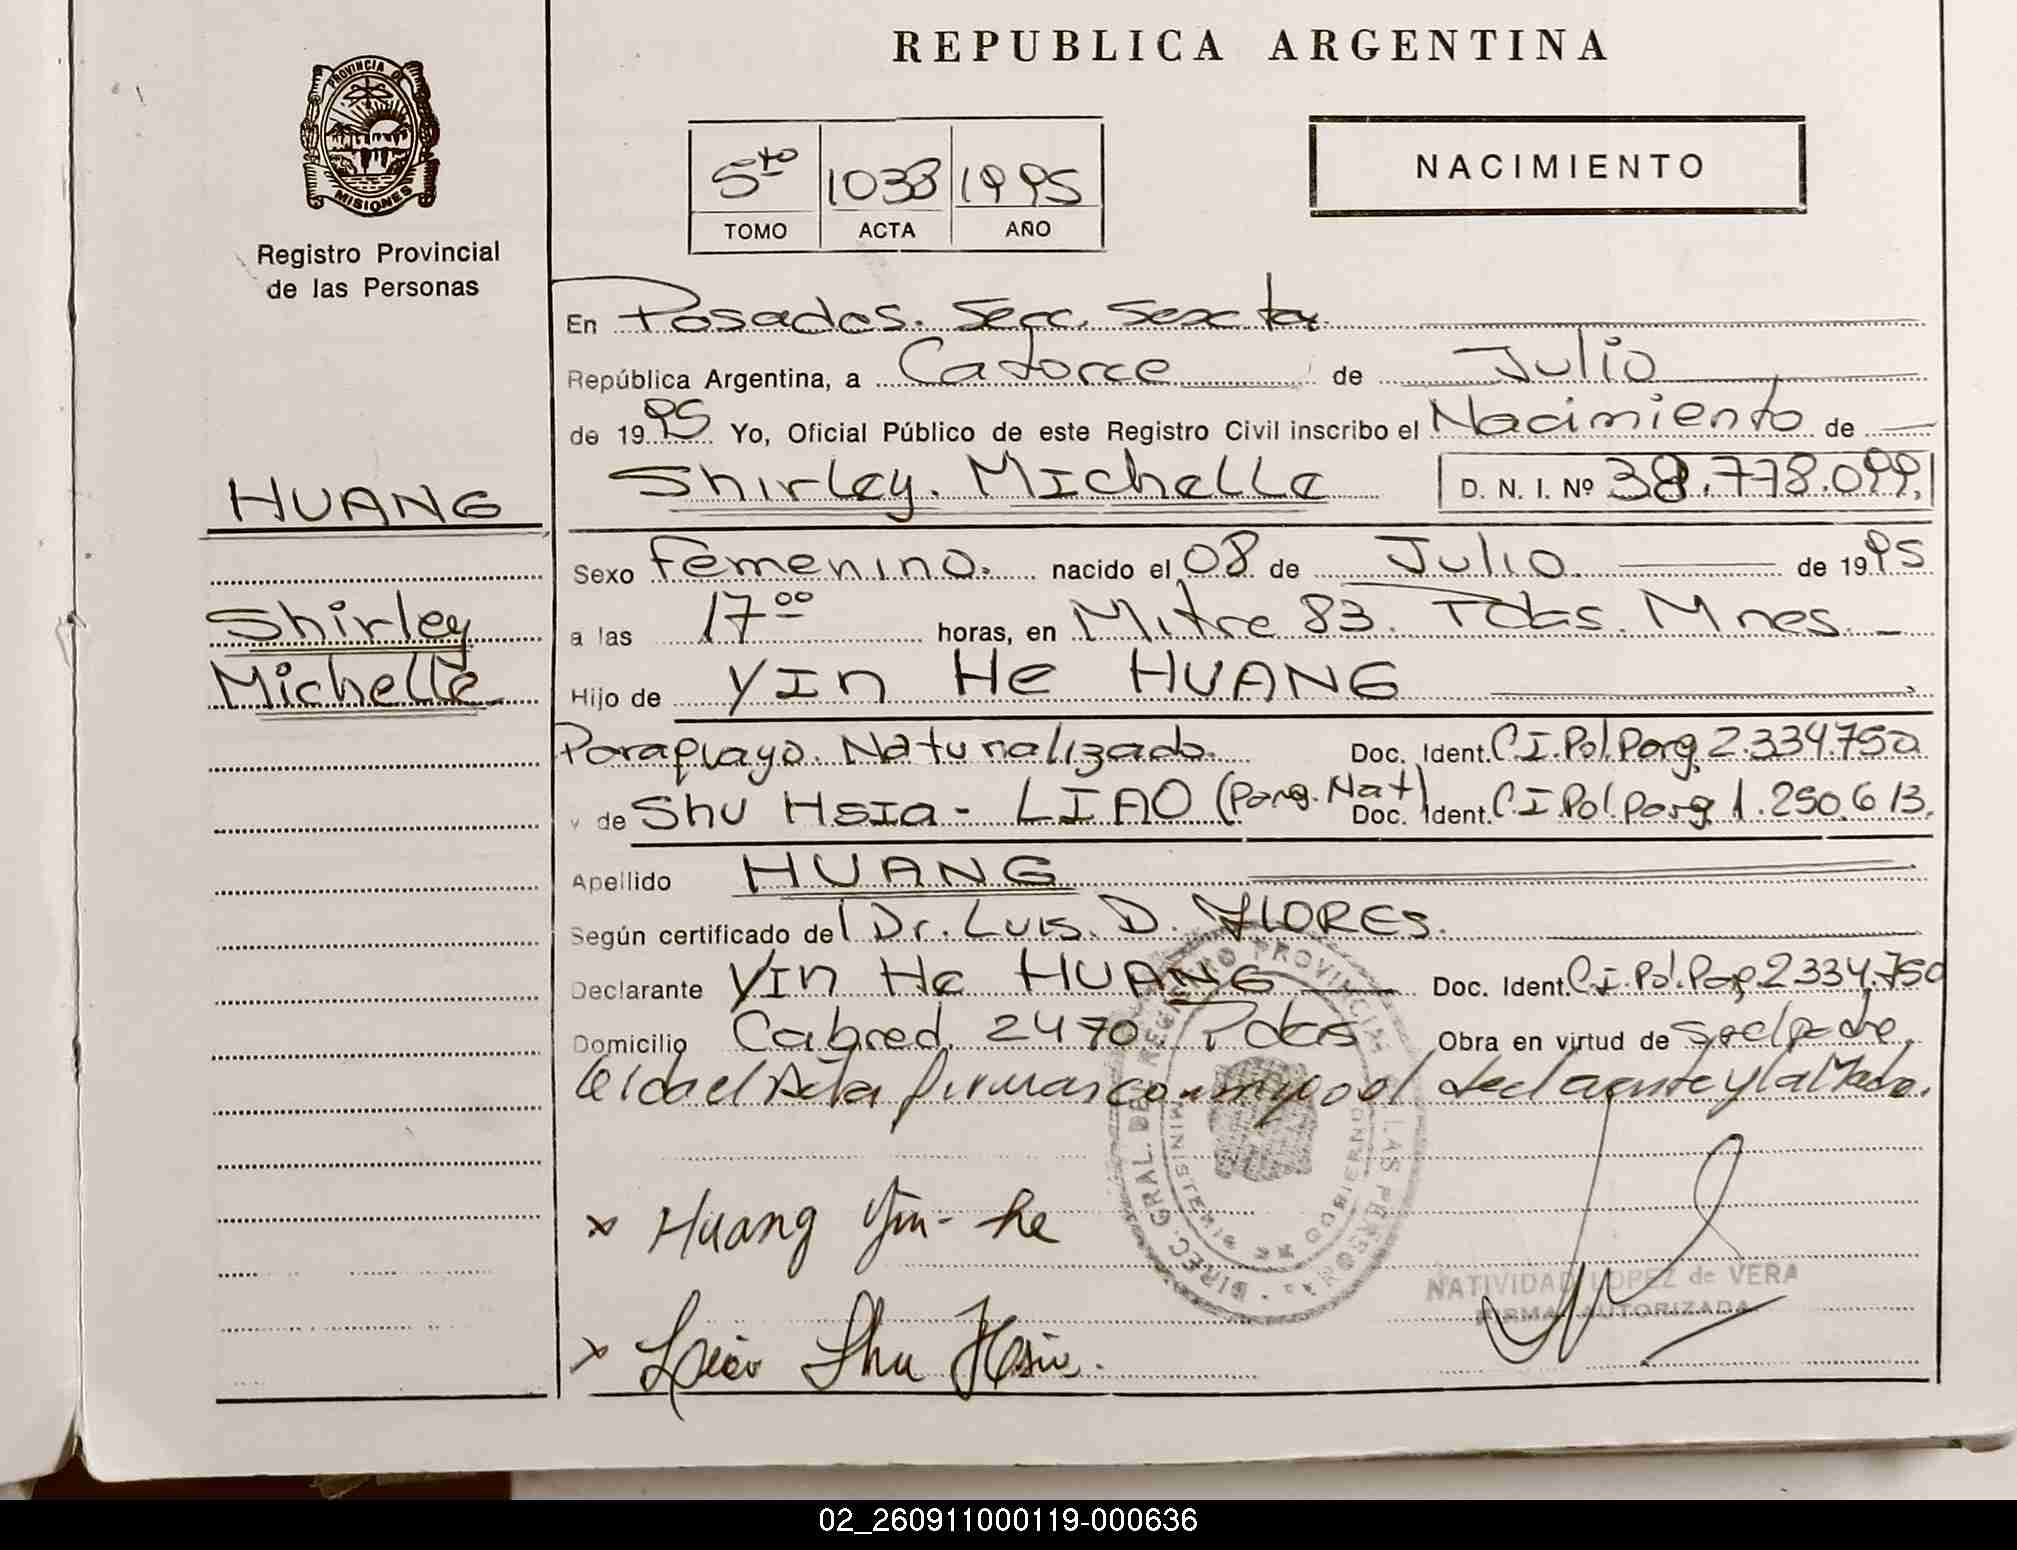 REPUBLICA ARGENTINA
PROVINCIA D
MISIONES
Registro Provincial
de las Personas
5to 1033 1995
TOMO ACTA AÑO
NACIMIENTO
En Posadas. Secc. Sexta
República Argentina, a Catorce de Julio
de 1995 Yo, Oficial Público de este Registro Civil inscribo el Nacimiento de
HUANG
Shirley. Michelle D. N. I. Nº 38.778.099.
Sexo Femenino. nacido el 08 de Julio de 1995
Shirley
Michelle
a las 17 00 horas, en Mitre 83. Pdas. Mnes.
Hijo de YIn He HUANG
Paraguayo. Naturalizado. Doc. Ident. C.I.Pol.Parg. 2.334.750
y de Shu HSIa - LIAO (Parg. Nat) Doc. Ident. C.I Pol. Parg 1.250.613.
Apellido HUANG
Según certificado del Dr. Luis. D. FLORES.
Declarante YIn He HUANG Doc. Ident. C.I. Pol. Parg 2334.750
Domicilio Cabred. 2470. Pdas Obra en virtud de ser el padre
leida el Acta firman conmigo el declarante y la Madre.
x Huang Yin-he
x Liao Shu Hsia.
DIREC. GRAL. DE REGISTRO PROVINCIAL DE LAS PERSONAS
MINISTERIO DE GOBIERNO
NATIVIDAD LOPEZ de VERA
FIRMA AUTORIZADA
02_260911000119-000636